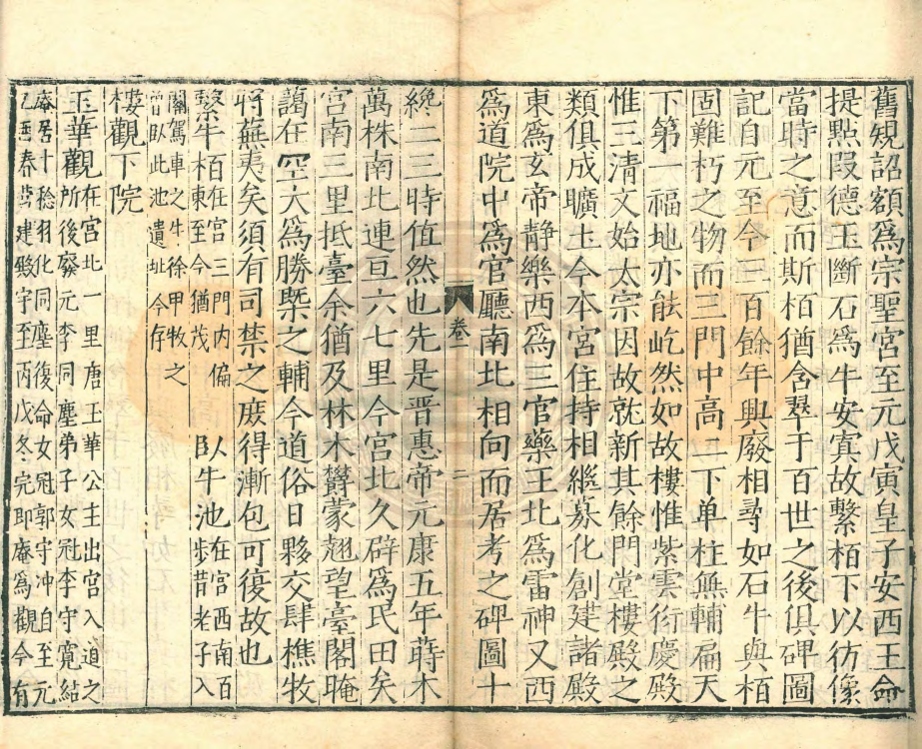 舊規詔額爲宗聖宮至元戊寅皇子安西王命
提點叚德玉斷石爲牛安寘故繫栢下以彷像
當時之意而斯栢猶含翠于百世之後俱碑圖
記自元至今三百餘年興廢相尋如石牛與栢
固難朽之物而三門中高二下单柱無輔扁天
下第一福地亦能屹然如故樓惟紫雲衍慶殿
惟三清文始太宗因故就新其餘門堂樓殿之
類俱成曠土今本宮住持相繼募化創建諸殿
東爲玄帝静樂西爲三官藥王北爲雷神又西
爲道院中爲官廳南北相向而居考之碑圖十
卷一
二
纔二三時值然也先是晋惠帝元康五年蒔木
萬株南北連亘六七里今宮北久辟爲民田矣
宮南三里抵臺余猶及林木欝蒙翹望臺閣晻
藹在空大爲勝槩之輔今道俗日夥交肆樵牧
將蕪夷矣須有司禁之庶得漸包可復故也
繫牛栢在宮三門内偏東至今猶茂
臥牛池在宮西南百步昔老子入
關駕車之牛徐甲牧之
曾臥此池遺址今存
樓觀下院
玉華觀在宮北一里唐玉華公主出宮入道之
所後廢元李同塵弟子女冠李守寬結
庵居十稔羽化同塵後命女冠郭守冲自至元
乙酉春葺建殿宇至丙戊冬完即庵爲觀今有